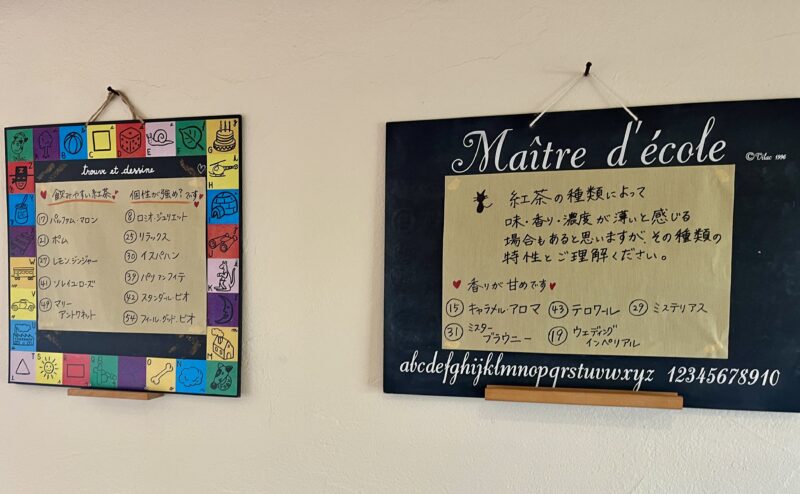 trouve et dessine
飲みやすい紅茶
⑰ パルファム・マロン
㉑ ポム
㉗ レモンジンジャー
㊶ ソレイユローズ
㊾ マリー
アントワネット
個性が強め?です
⑧ ロミオ・ジュリエット
㉕ リラックス
㉚ イスパハン
㊴ パリアンフィテ
㊷ スタンダールビオ
54 フィール・グッド・ビオ
Maître d'école
©Vilac 1996
紅茶の種類によって
味・香り・濃度が薄いと感じる
場合もあると思いますが、その種類の
特性とご理解ください。
香りが甘めです
⑮ キャラメル・アロマ ㊸ テロワール ㉙ ミステリアス
㉛ ミスター
ブラウニー
⑲ ウェディング
インペリアル
abcdefghijklmnopqrstuvwxyz 12345678910